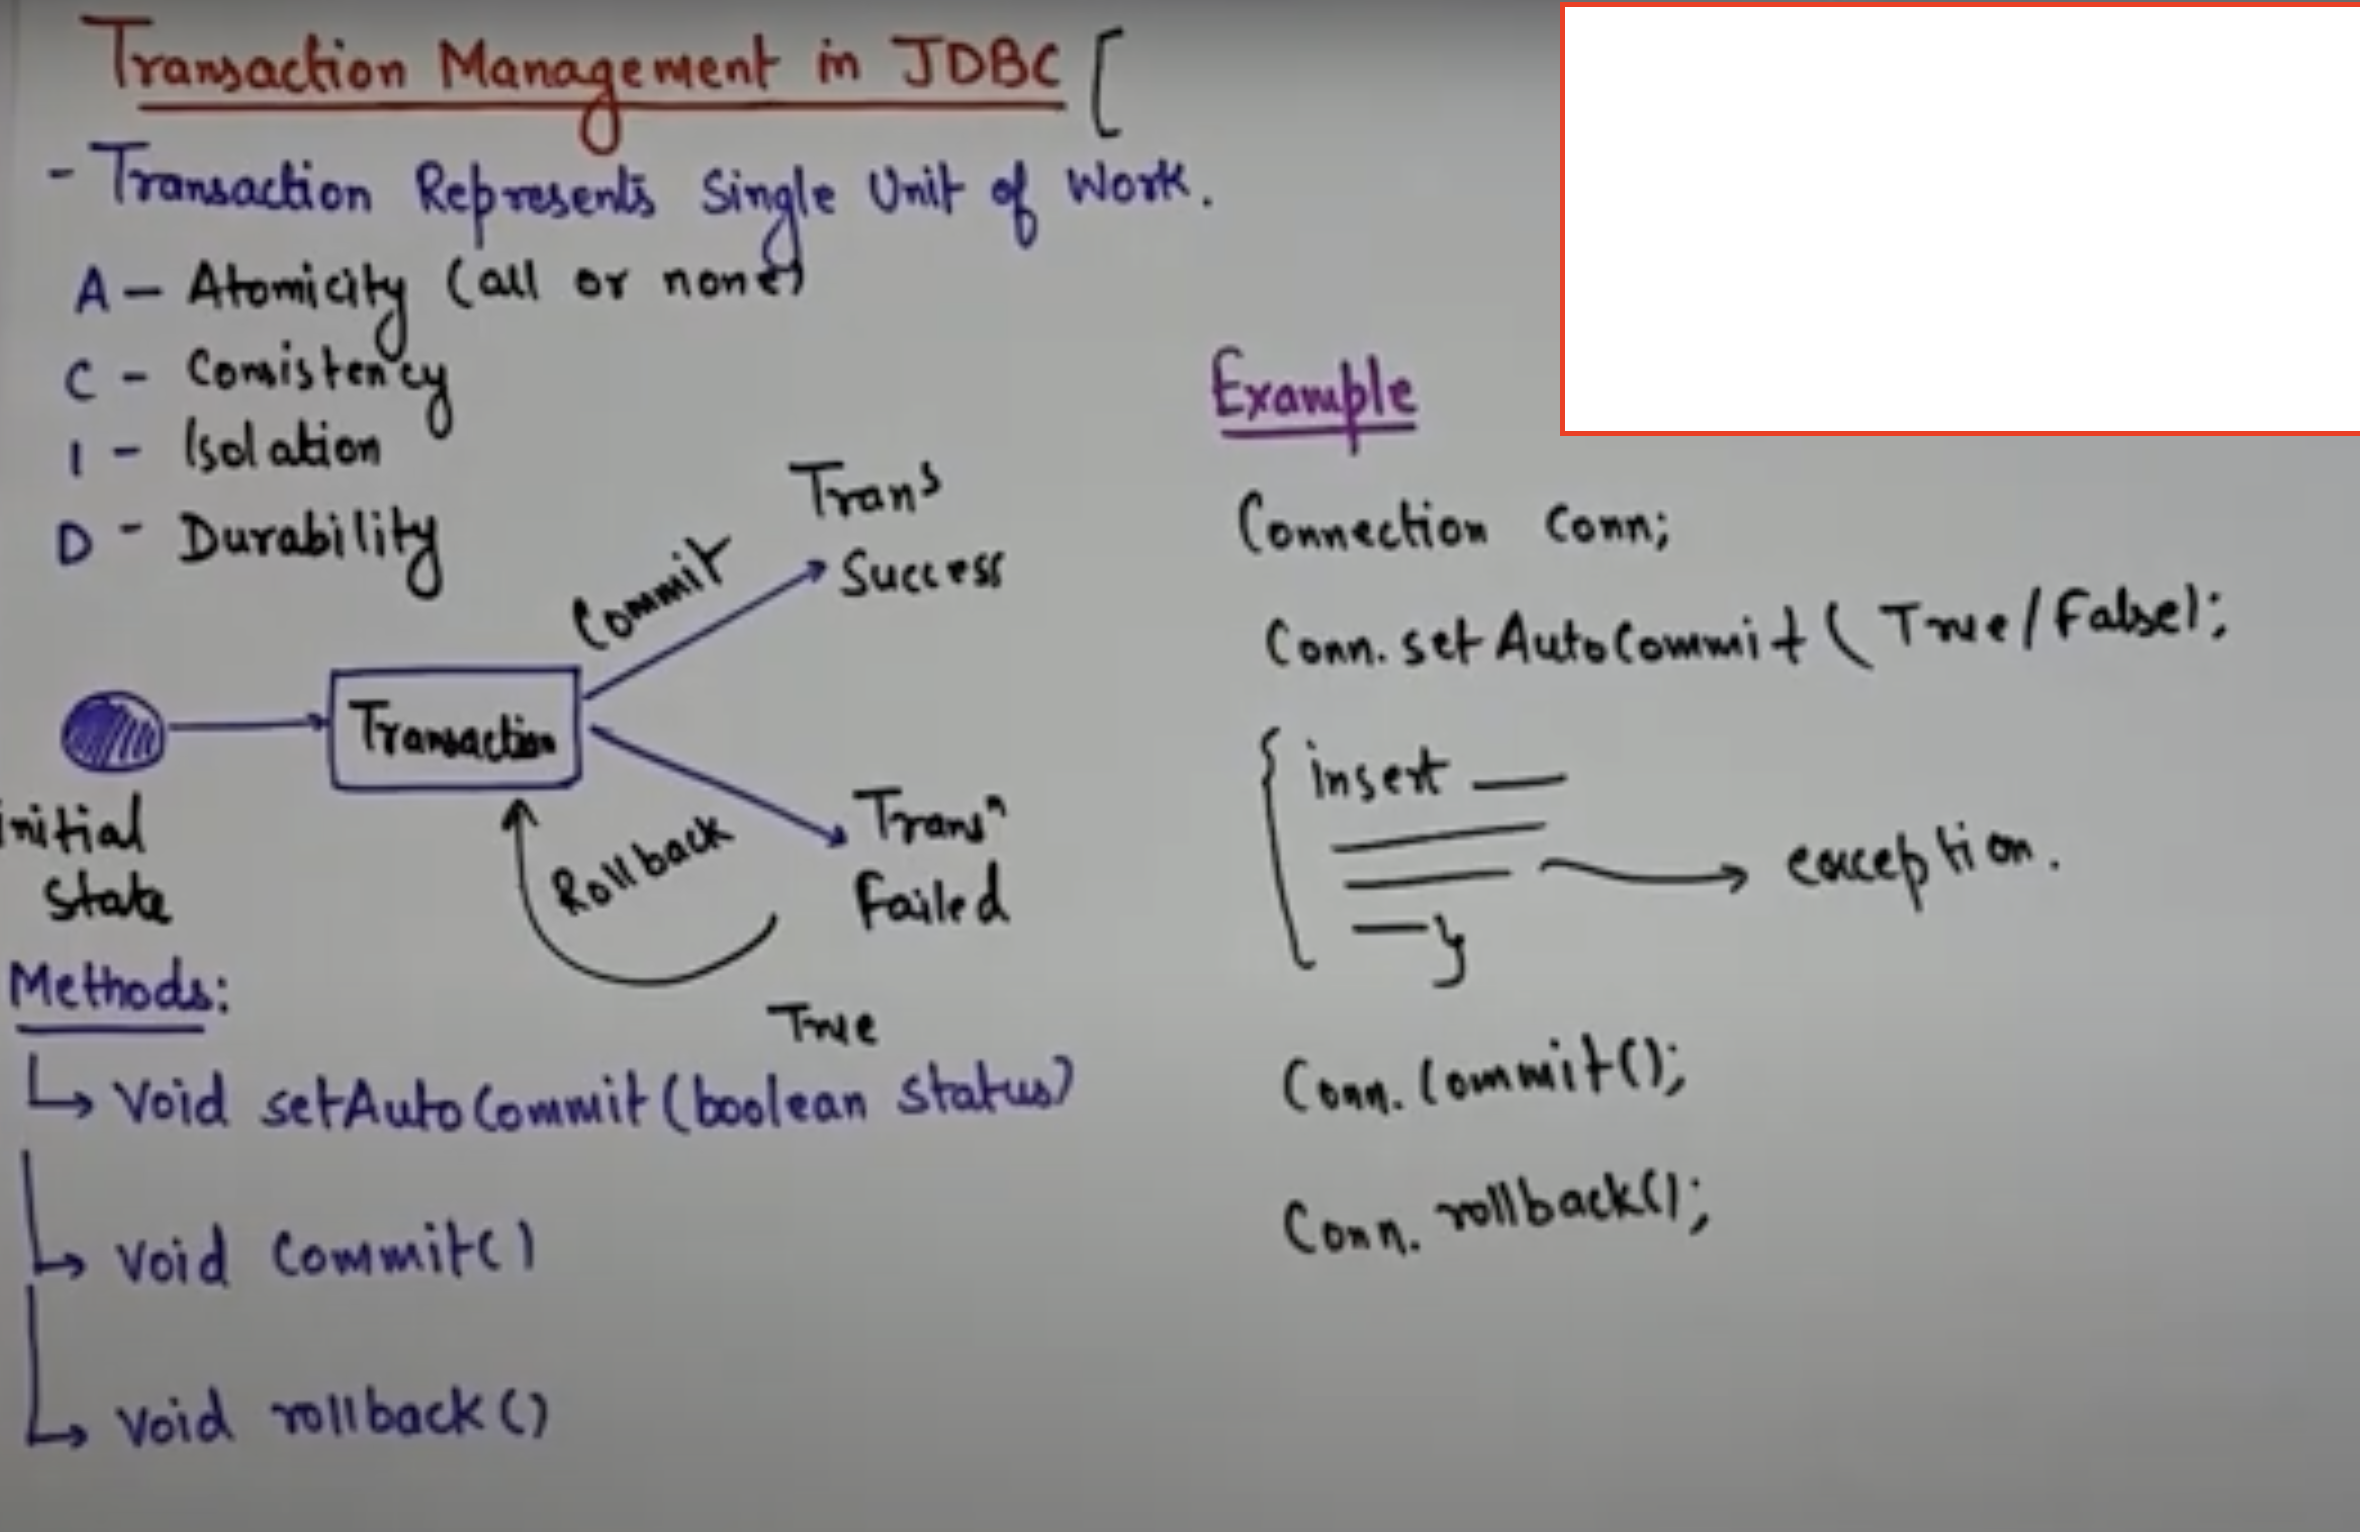 Transaction Management in JDBC [
- Transaction Represents Single Unit of Work.
A - Atomicity (all or none)
C - Consistency
I - Isolation
D - Durability
Commit
Trans
Success
Transaction
Initial
State
Rollback
Transⁿ
Failed
Methods:
True
Void setAutoCommit(boolean status)
Void Commit()
Void rollback()
Example
Connection Conn;
Conn.setAutoCommit(True/False);
{ insert
}
exception.
Conn.Commit();
Conn.rollback();